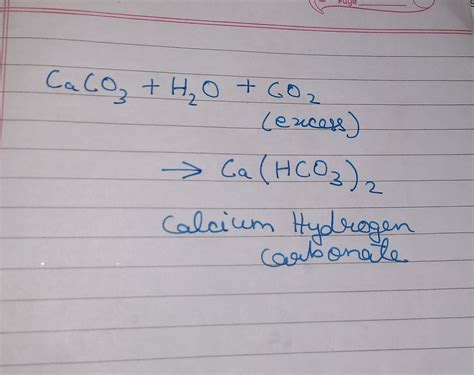 Page
CaCO₃ + H₂O + CO₂
(excess)
→ Ca(HCO₃)₂
Calcium Hydrogen
Carbonate